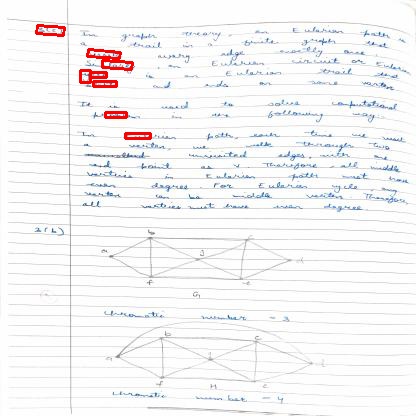 In graph theory, an Eularian path is
a trail in a finite graph that
every edge exactly once.
an Eularian circuit or Eularian
is an Eularian trail that
and ends on same vertex
It is used to solve computational
in the following way:
In path, each time we visit
a vertex, we walk through two
unvisited edges, with one
end point as v. Therefore, all middle
vertices in Eularian path must have
even degree. For Eularian cycle, any
vertex can be middle vertex. Therefore,
all vertices must have even degree.
2(b)
b c
a g d
f e
G
chromatic number = 3
b c
a i d
f H e
chromatic number = 4